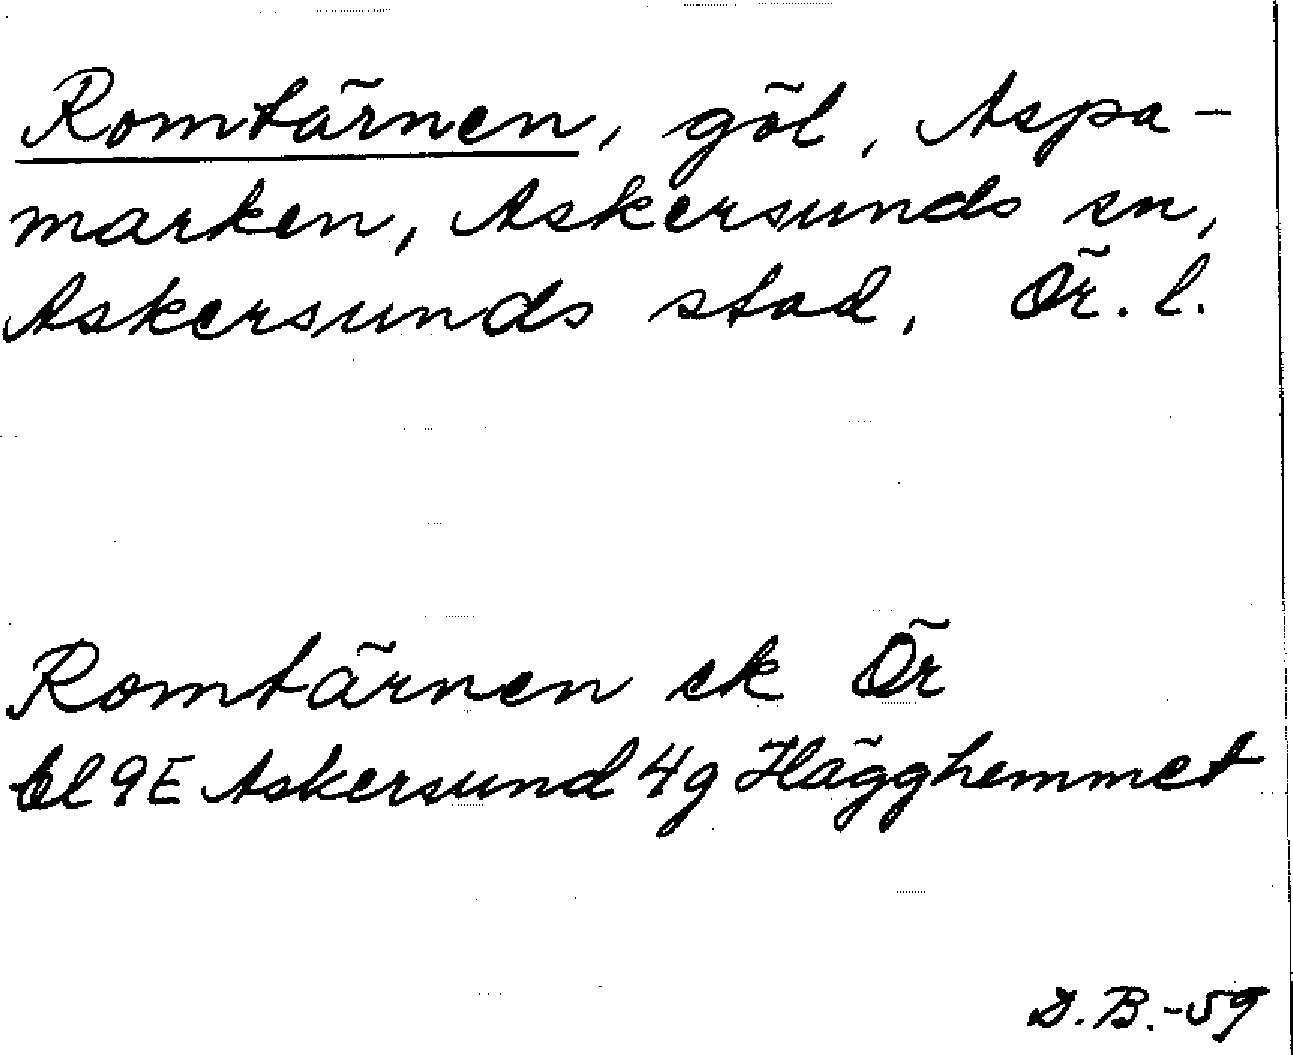 Romtärnen, göl, Aspa-
marken, Askersunds sn,
Askersunds stad, Ör. l.
Romtärnen ek Ör
bl 9E Askersund 4g Hägghemmet
D.B.-59